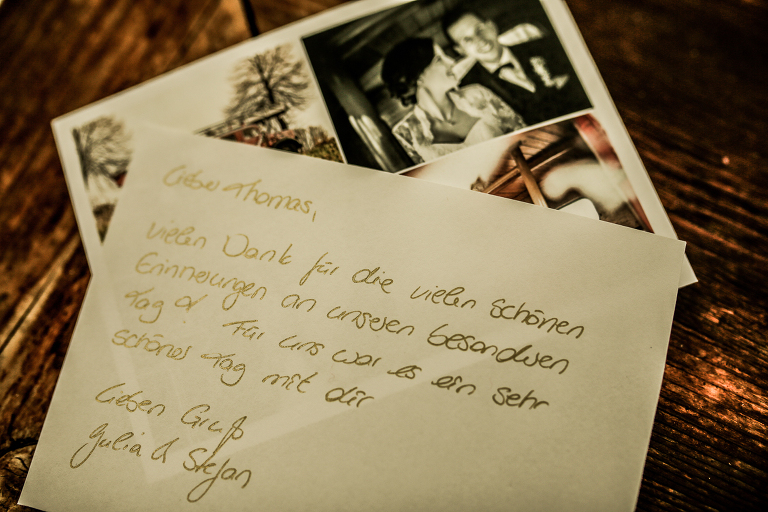 Lieber Thomas,
vielen Dank für die vielen schönen
Erinnerungen an unseren besonderen
Tag. Für uns war es ein sehr
schöner Tag mit dir
Lieben Gruß
Julia & Stefan